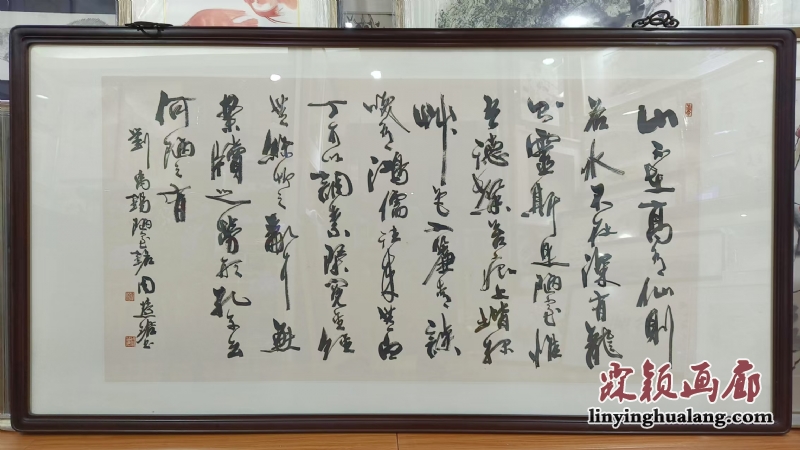 山不在高有仙則
名水不在深有龍
則靈斯是陋室惟
吾德馨苔痕上階綠
艸色入簾青談
笑有鴻儒往來無白
丁可以調素琴閱金經
無絲竹之亂耳無
案牘之勞形孔子云
何陋之有
劉禹錫陋室銘
霖颖画廊
linyinghualang.com